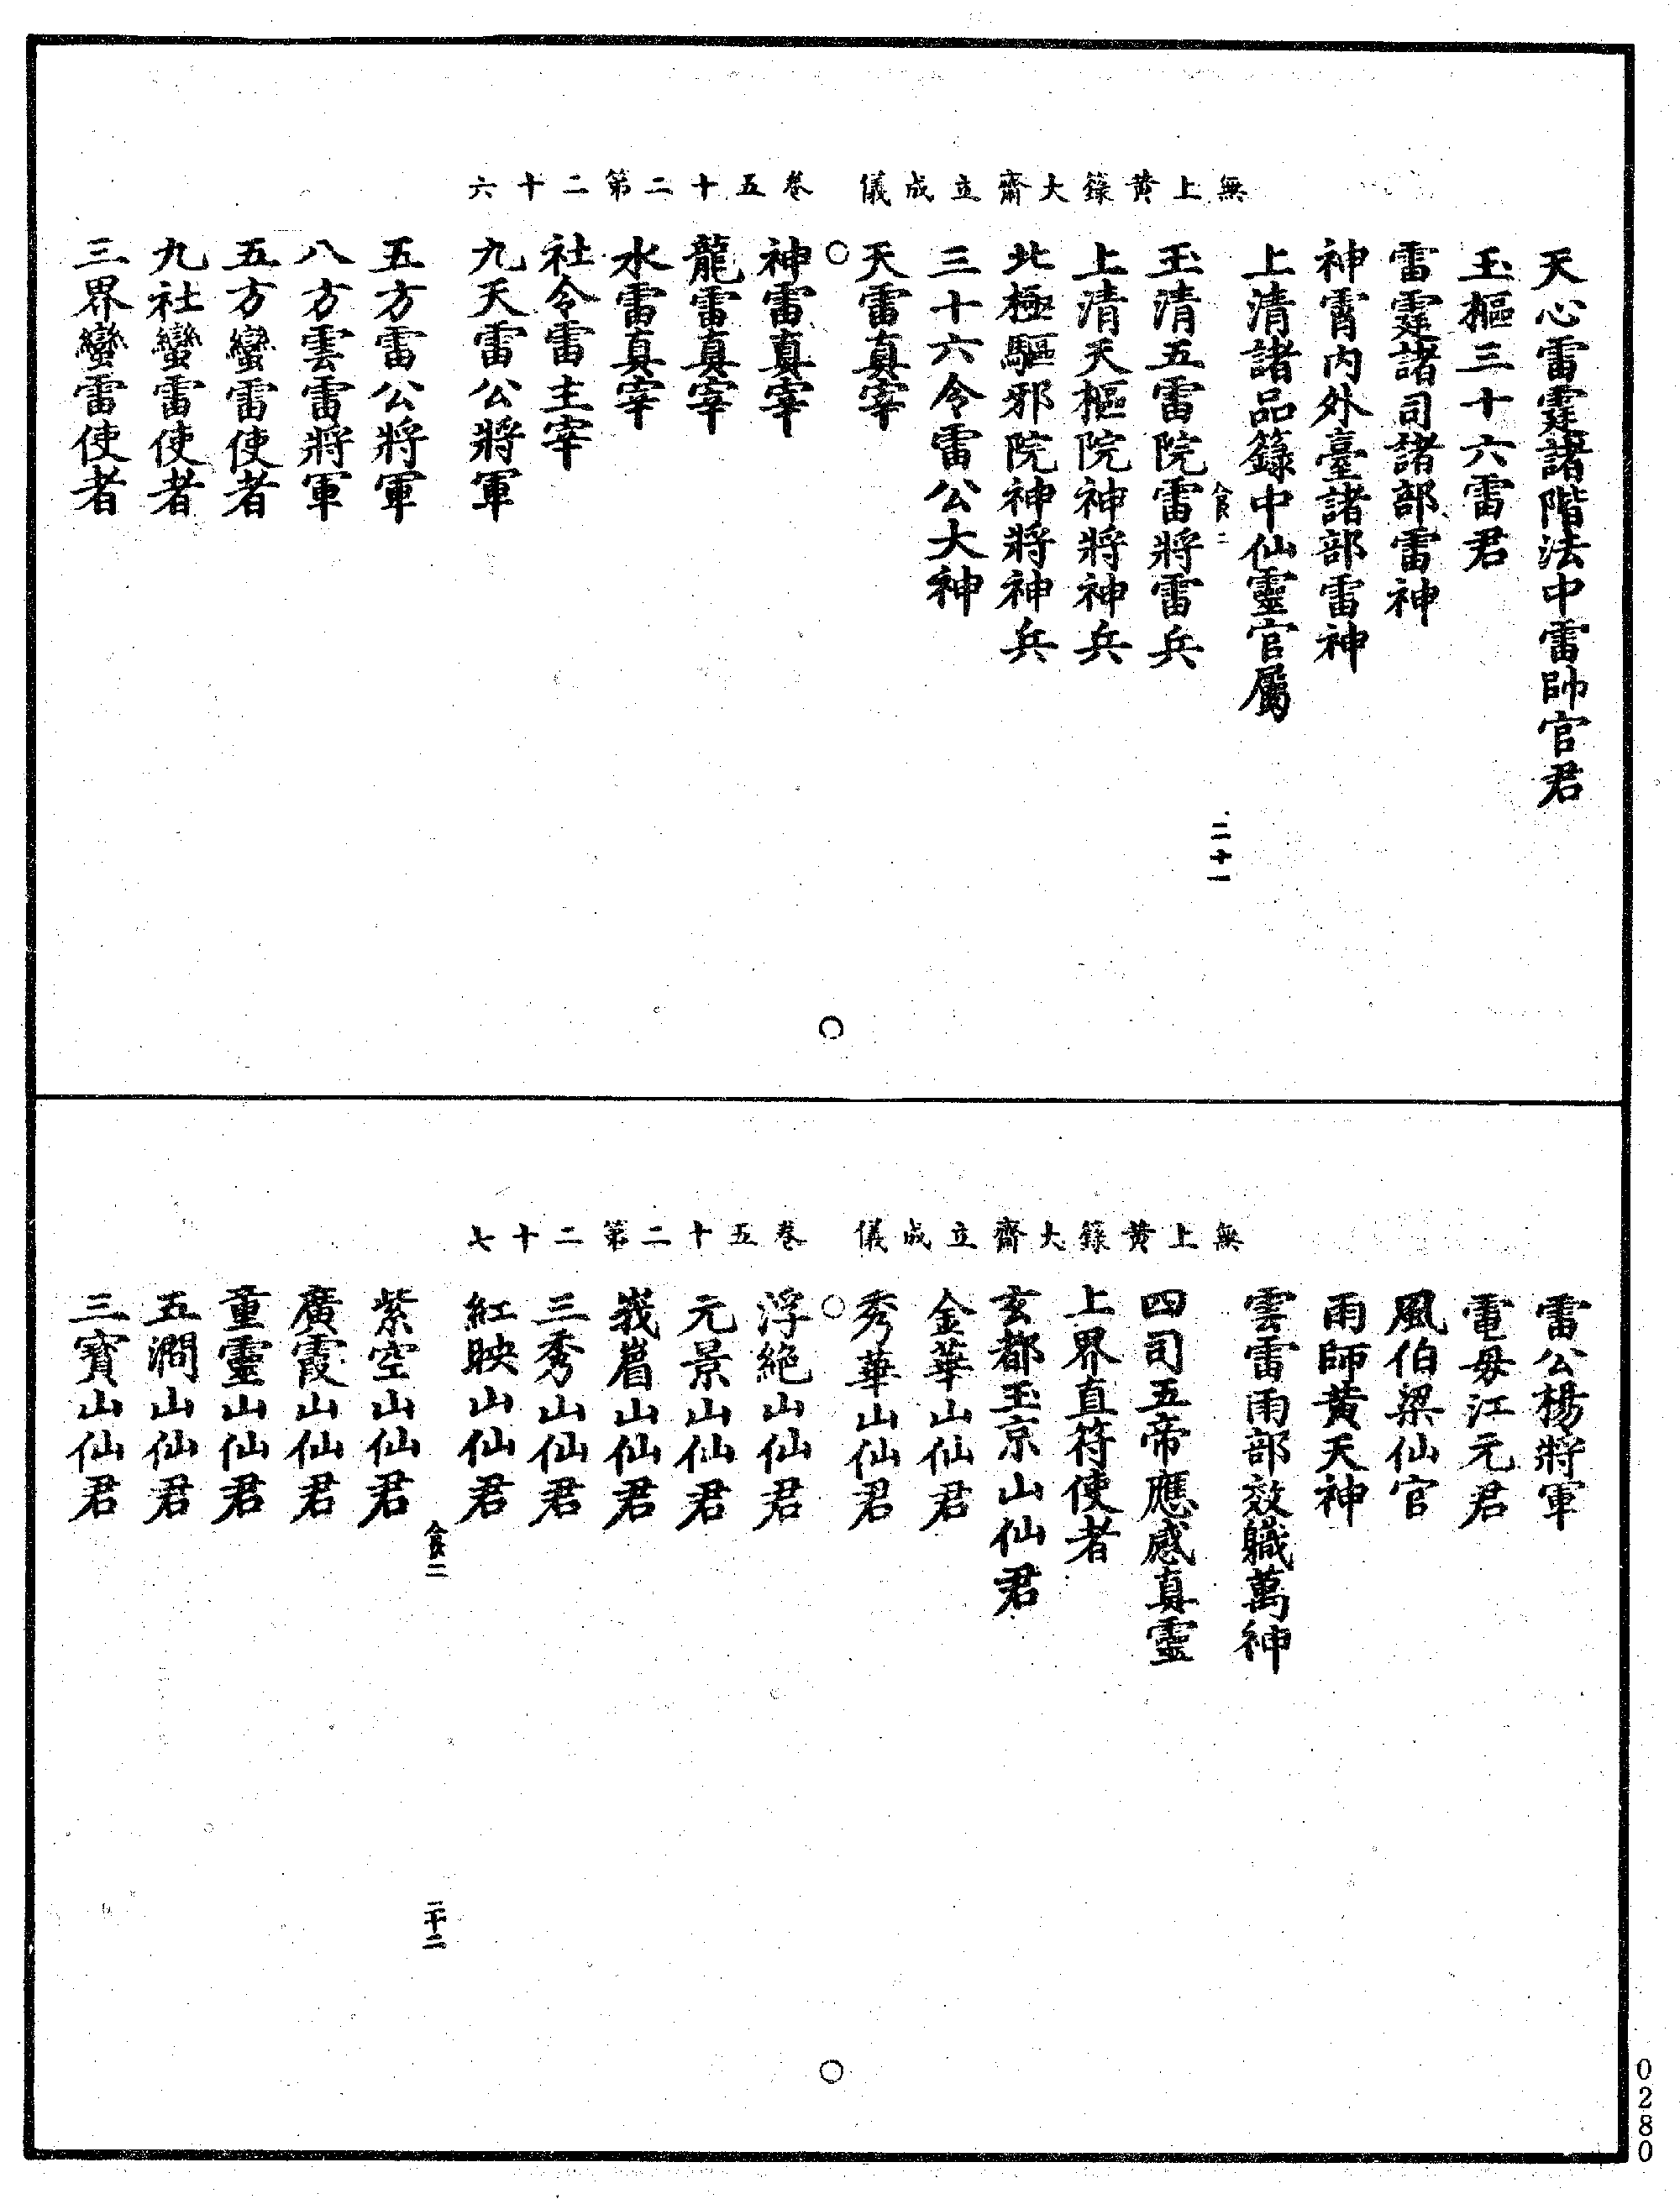 無上黃籙大齋立成儀 卷五十二第二十六
天心雷霆諸階法中雷帥官君
玉樞三十六雷君
雷霆諸司諸部雷神
神霄內外臺諸部雷神
上清諸品籙中仙靈官屬
食二 二十一
玉清五雷院雷將雷兵
上清天樞院神將神兵
北極驅邪院神將神兵
三十六令雷公大神
天雷真宰
神雷真宰
龍雷真宰
水雷真宰
社令雷主宰
九天雷公將軍
五方雷公將軍
八方雲雷將軍
五方蠻雷使者
九社蠻雷使者
三界蠻雷使者
無上黃籙大齋立成儀 卷五十二第二十七
雷公楊將軍
電母江元君
風伯梁仙官
雨師黃天神
雲雷雨部效職萬神
四司五帝應感真靈
上界直符使者
玄都玉京山仙君
金華山仙君
秀華山仙君
浮絕山仙君
元景山仙君
峩眉山仙君
三秀山仙君
紅映山仙君
食二 二十二
紫空山仙君
廣霞山仙君
重靈山仙君
五澗山仙君
三寶山仙君
0280